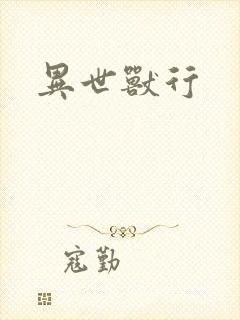 異世獸行
寇勤